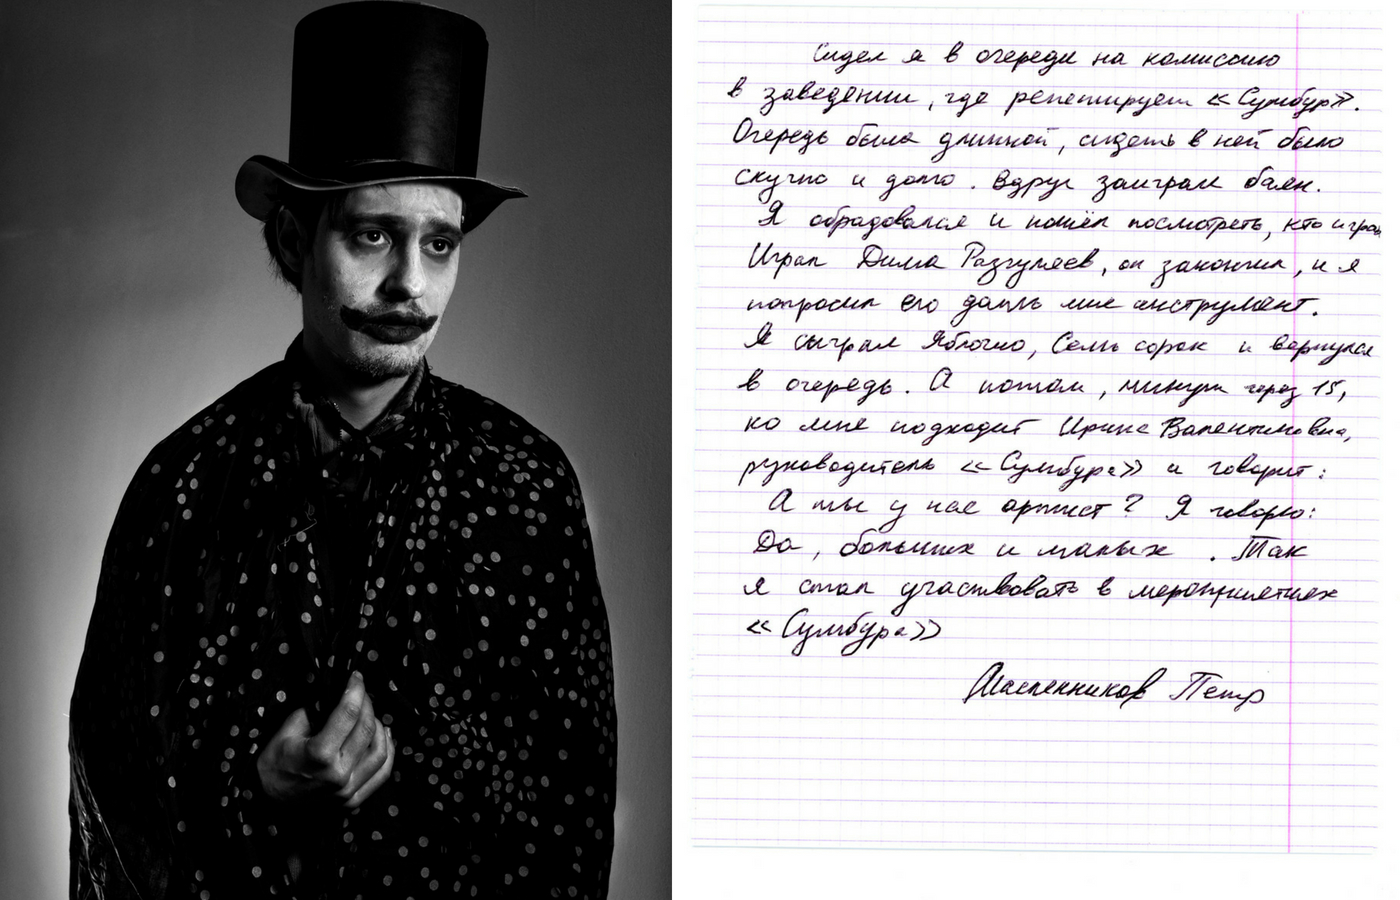 Сидел я в очереди на комиссию
в заведении, где репетирует «Сумбур».
Очередь была длинной, сидеть в ней было
скучно и долго. Вдруг заиграл баян.
Я обрадовался и пошёл посмотреть, кто играл
Играл Дима Разгуляев, он закончил, и я
попросил его дать мне инструмент.
Я сыграл Яблочко, Семь сорок и вернулся
в очередь. А потом, минут через 15,
ко мне подходит Ирина Валентиновна,
руководитель «Сумбура» и говорит:
А ты у нас артист? Я говорю:
Да, больших и малых . Так
я стал участвовать в мероприятиях
«Сумбура»
Масленников Петр